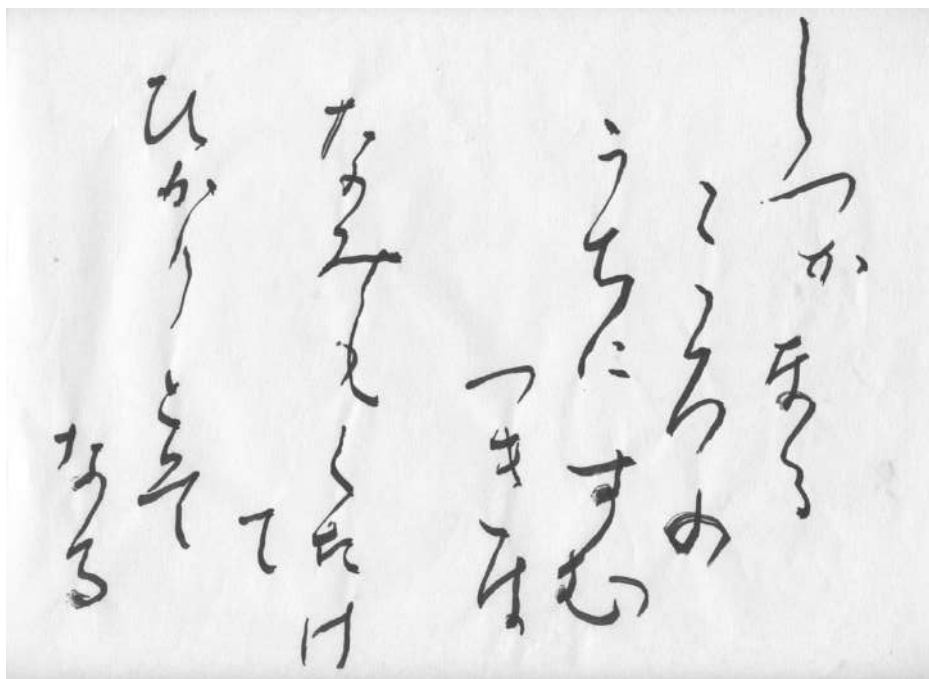 しつかなる
こころの
うちにすむ
つきは
なみもくたけ
て
ひかりとそ
なる